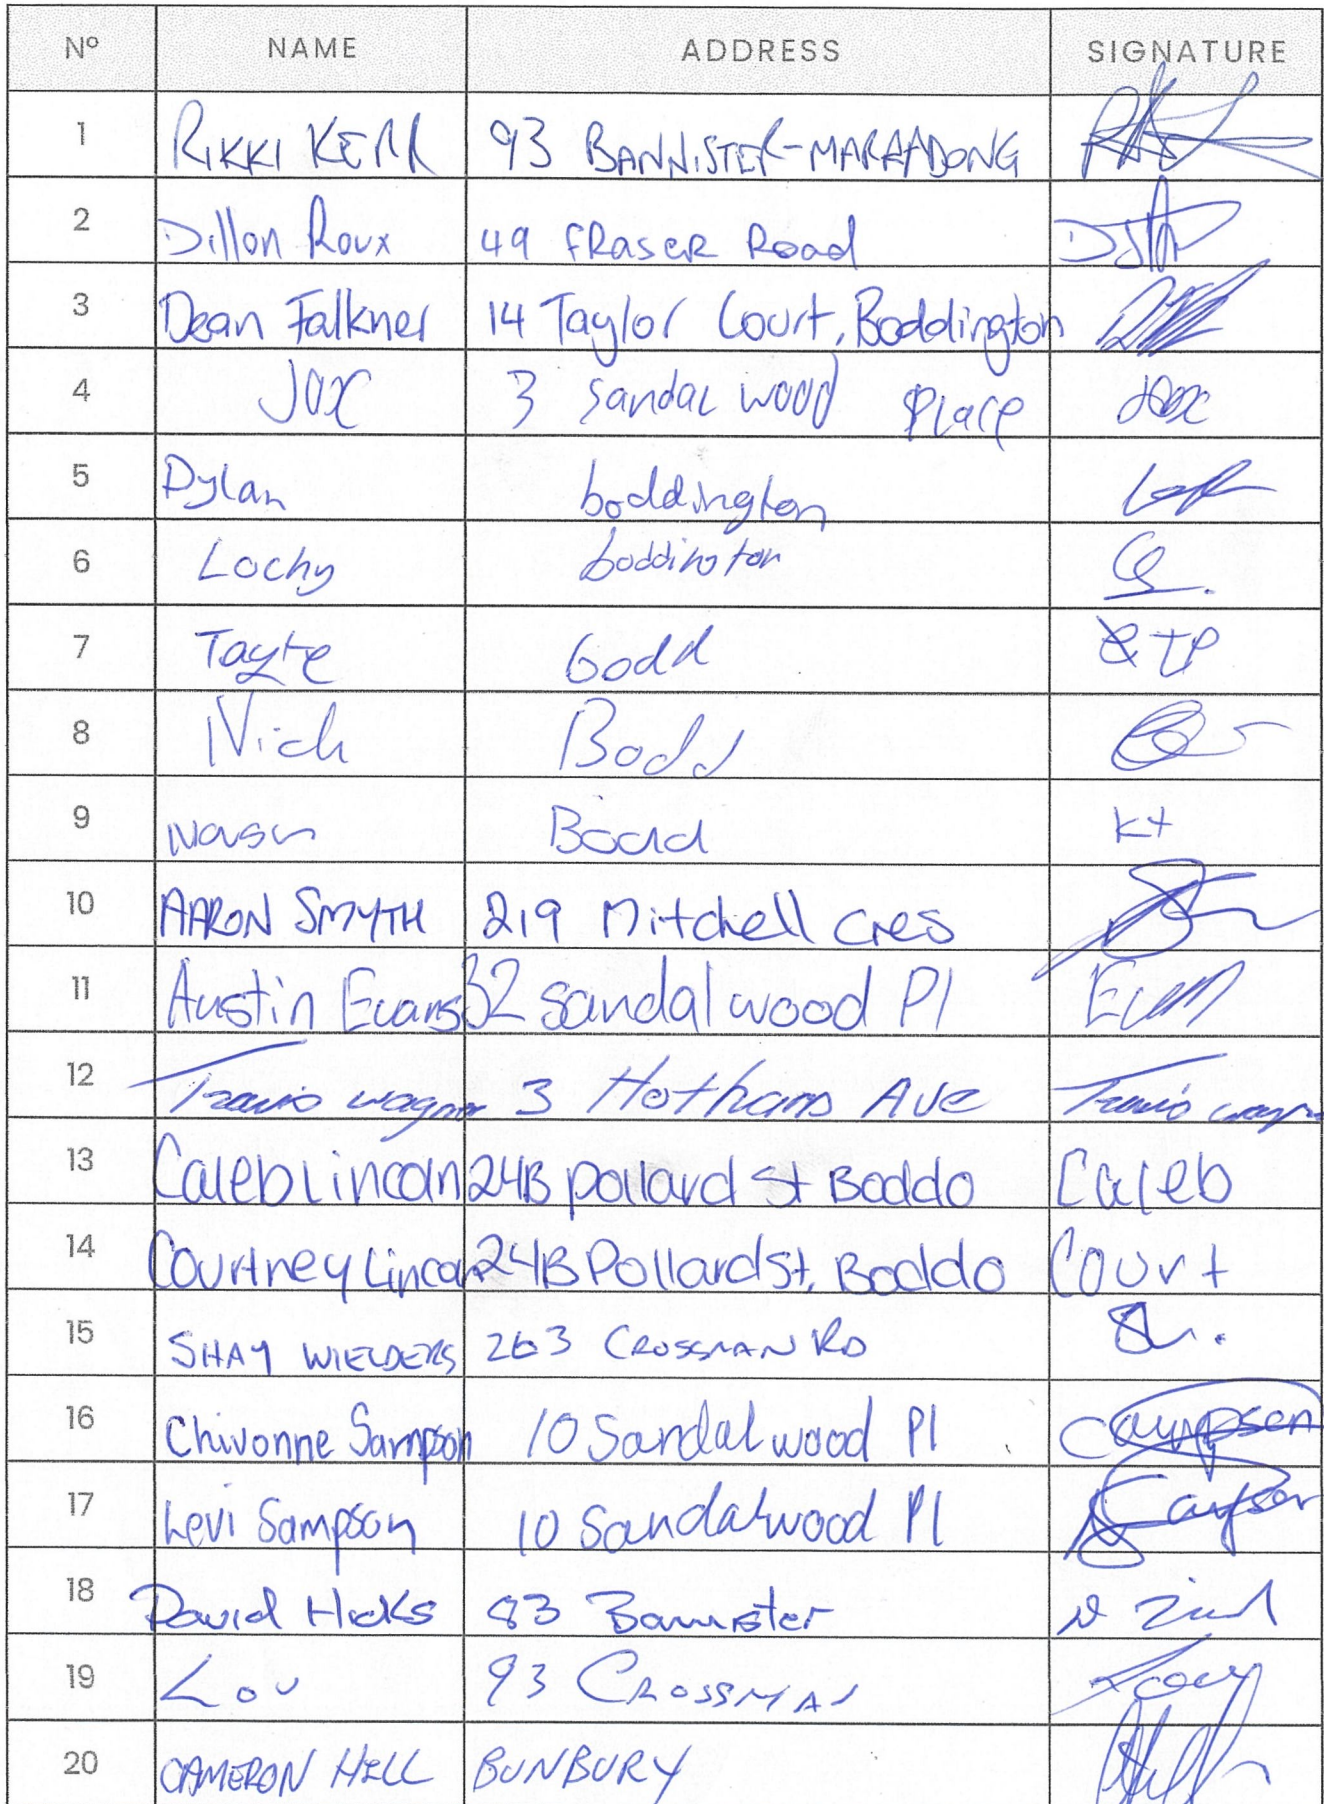 Nº NAME ADDRESS SIGNATURE
1 RIKKI KERR 93 BANNISTER-MARRADONG
2 Dillon Roux 49 FRaseR Road
3 Dean Falkner 14 Taylor Court, Boddington
4 Jax 3 Sandal wood Place Jax
5 Dylan boddington
6 Lochy boddington
7 Tayte bodd TP
8 Nick Bodd
9 Bodd Kt
10 AARON SMYTH 219 Mitchell cres
11 Austin Evans 32 sandal wood Pl Evans
12 Travis wagner 3 Hotham Ave Travis wagner
13 Caleb Lincoln 24B pollard st Boddo Caleb
14 Courtney Lincoln 24B Pollard St, Boddo Court
15 SHAY WIELDERS 263 CROSSMAN RD
16 Chivonne Sampson 10 Sandalwood Pl
17 Levi Sampson 10 Sandalwood Pl
18 David Hicks 83 Bannister
19 Lou 93 CROSSMAN
20 CAMERON HILL BUNBURY